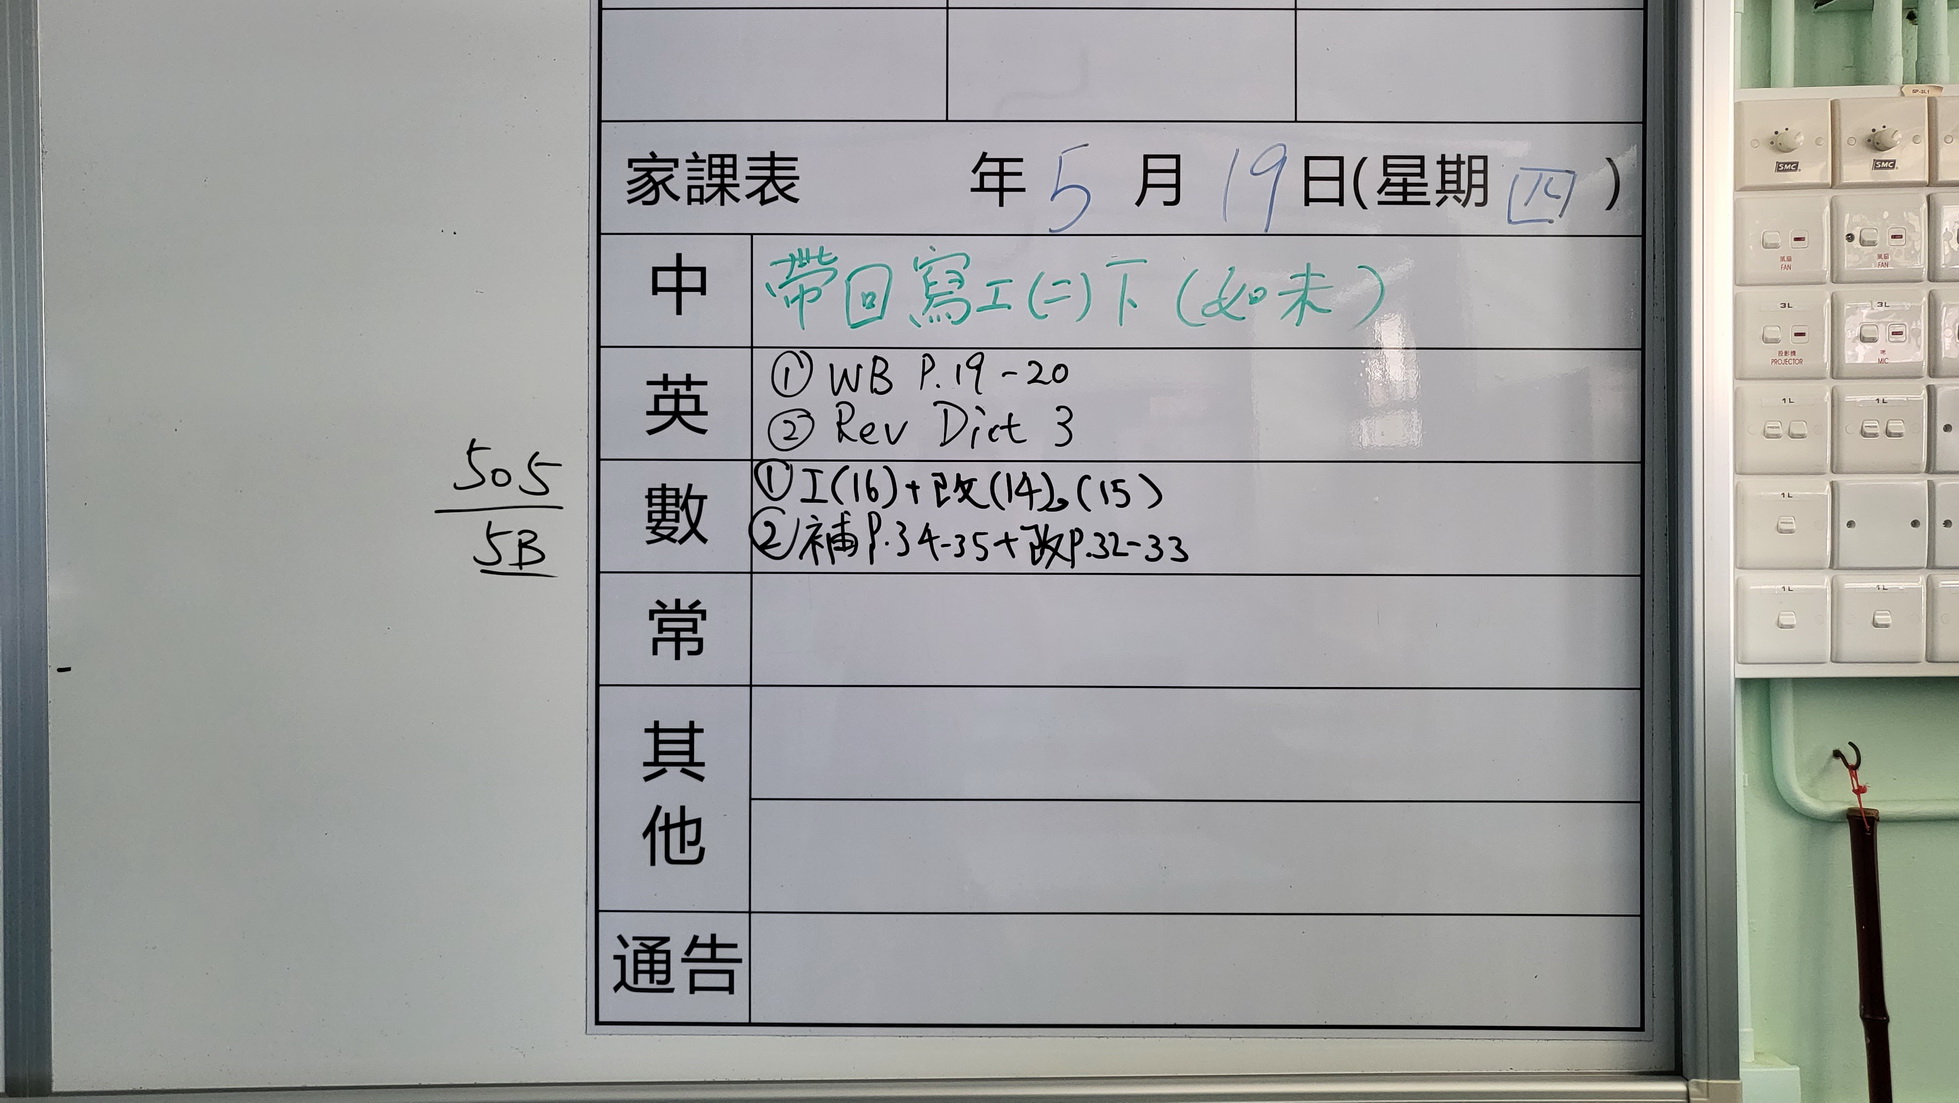 家課表 年 5 月 19 日(星期 四 )
中 帶回寫工(二)下(如未)
英 ① WB P.19-20
② Rev Dict 3
數 ①工(16)+改(14)、(15)
②補P.34-35+改P.32-33
常
其他
通告
505
5B
SMC SMC
風扇 FAN 風扇 FAN
3L 3L
投影機 PROJECTOR MIC
1L 1L
1L
1L 1L